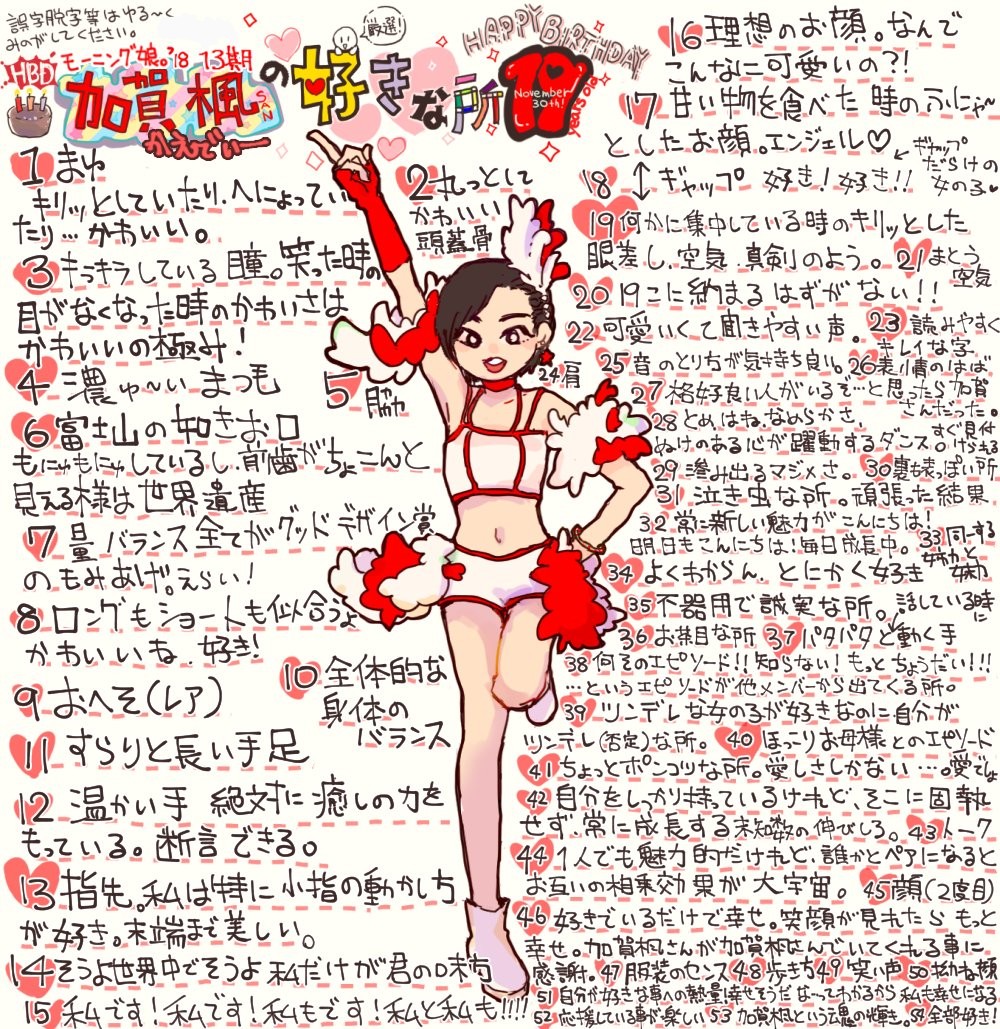 誤字脱字等はゆる〜く
みのがしてください。
HBD
モーニング娘。'18 13期
加賀楓SAN
かえでぃー
の好きな所
厳選!
HAPPY BIRTHDAY
19 years old
November
30th!
1 まゆ
キリッとしていたり、へにょってい
たり…かわいい。
2 丸っとして
かわいい
頭蓋骨
3 キラキラしている瞳。笑った時の
目がなくなった時のかわいさは
かわいいの極み!
4 濃ゅ〜いまつ毛
5 脇
6 富士山の如きお口
もにゅもにゅしているし、前歯がちょこんと
見える様は世界遺産
7 量 バランス全てがグッドデザイン賞
のもみあげ。えらい!
8 ロングもショートも似合うよ
かわいいね、好き!
9 おへそ(レア)
10 全体的な
身体の
バランス
11 すらりと長い手足
12 温かい手 絶対に癒しの力を
もっている。断言できる。
13 指先。私は特に小指の動かし方
が好き。末端まで美しい。
14 そうよ世界中でそうよ私だけが君の味方
15 私です!私です!私もです!私と私も!!!!
16 理想のお顔。なんで
こんなに可愛いの?!
17 甘い物を食べた時のふにゃ〜
としたお顔。エンジェル♡
18 ↕ギャップ 好き!好き!!
ギャップ
だらけの
女の子♥
19 何かに集中している時のキリッとした
眼差し、空気、真剣のよう。
20 19こに納まるはずがない!!
21 まとう
空気
22 可愛いくて聞きやすい声。
23 読みやすく
キレイな字
24 肩
25 音のとり方が気持ち良い。
26 表情のはば
27 格好良い人がいるぞ…と思ったら加賀
さんだった。
すぐ見付
けられる
28 とめ、はね、なめらかさ、
ぬけのある心が躍動するダンス。
29 滲み出るマジメさ。
30 裏表っぽい所
31 泣き虫な所。頑張った結果
32 常に新しい魅力がこんにちは!
明日もこんにちは!毎日成長中。
34 よくわからん、とにかく好き
35 不器用で誠実な所。
36 お茶目な所
37 パタパタと動く手
話している時
に
38 何そのエピソード!!知らない!もっとちょうだい!!!
…というエピソードが他メンバーから出てくる所。
39 ツンデレな女の子が好きなのに自分が
ツンデレ(否定)な所。
40 ほっこりお母様とのエピソード
41 ちょっとポンコツな所。愛しさしかない…。愛でよ
42 自分をしっかり持っているけれど、そこに固執
せず、常に成長する未知数の伸びしろ。
43 トーク
44 1人でも魅力的だけれど、誰かとペアになると
お互いの相乗効果が大宇宙。
45 顔(2度目)
46 好きでいるだけで幸せ。笑顔が見れたらもっと
幸せ。加賀楓さんが加賀楓さんでいてくれる事に
感謝。
47 服装のセンス
48 歩き方
49 笑い声
50 幼な顔
51 自分が好きな事への熱量!幸せそうだなってわかるから私も幸せになる
52 応援している事が楽しい
53 加賀楓という魂の輝き。
54 全部好き!